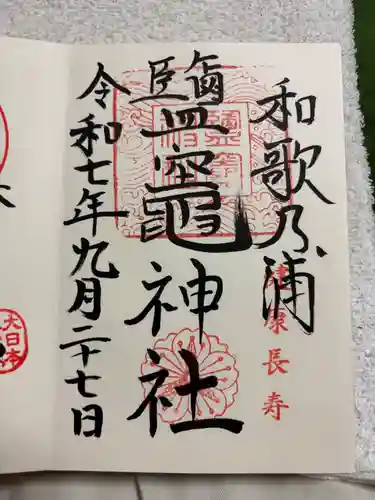 和歌乃浦
健康長寿
鹽竈神社
令和七年九月二十七日
大日本